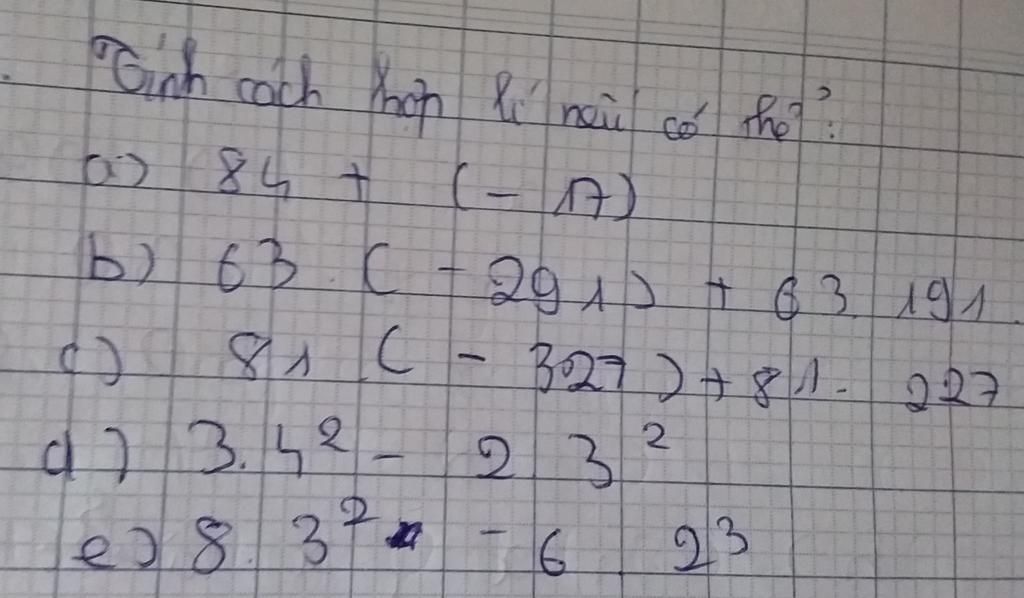 Tính cách hợp lí nếu có thể:
a) 84 + (- 17)
b) 63. (- 291) + 63. 191
c) 81 (- 327) + 81. 227
d) 3.4² - 2 3²
e) 8. 3² - 6 2³